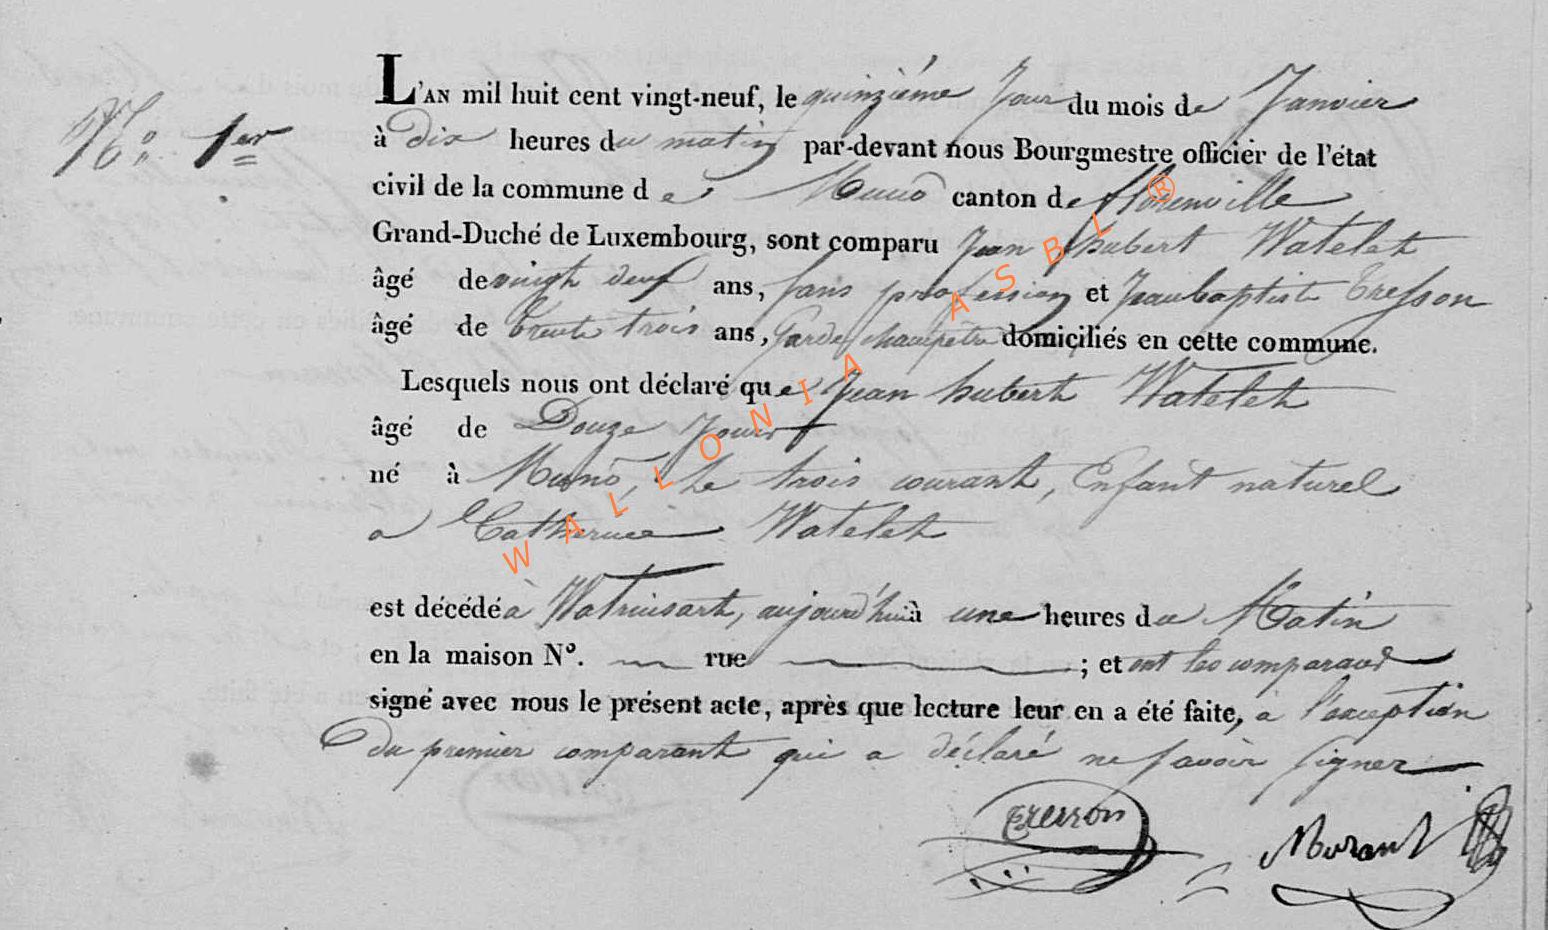 N.º 1er
L'AN mil huit cent vingt-neuf, le quinziéme Jour du mois de Janvier
à dix heures du matin par-devant nous Bourgmestre officier de l'état
civil de la commune de Muno canton de florenville
Grand-Duché de Luxembourg, sont comparu Jean hubert Watelet
âgé de vingt deux ans, sans profession et Jeanbaptiste Tresson
âgé de trente trois ans, Garde champetre domiciliés en cette commune.
Lesquels nous ont déclaré que Jean hubert Watelet
âgé de Douze Jours
né à Muno, Le trois courant, Enfant naturel
a Catherine Watelet
est décédé a Watrinsart, aujourd'hui à une heures du Matin
en la maison Nº. rue ; et ont les comparans
signé avec nous le présent acte, après que lecture leur en a été faite, a l'exception
du premier comparant qui a déclaré ne savoir signer
Tresson Morant
WALLONIA ASBL®